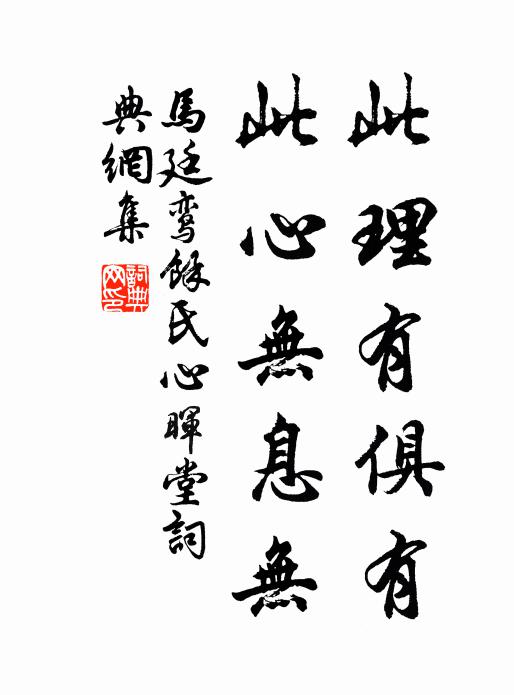 此理有俱有
此心無息無
馬廷鸾餘氏心暉堂詞
典網集
詞典網印